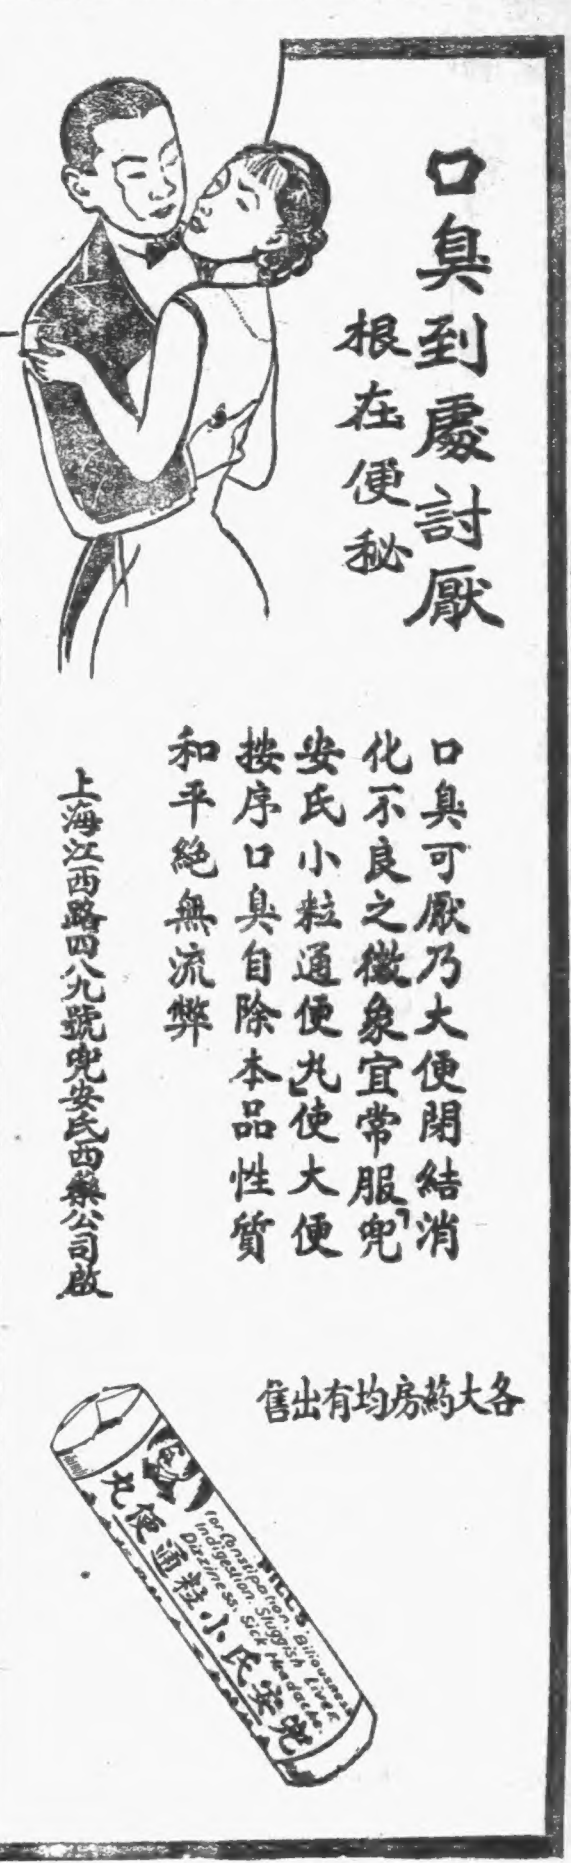 口臭到處討厭
根在便秘
口臭可厭乃大便閉結消
化不良之徵象宜常服「兜
安氏小粒通便丸」使大便
按序口臭自除本品性質
和平絶無流弊
上海江西路四八九號兜安氏西藥公司啟
各大葯房均有出售
PILLS
for Constipation. Biliousness
Indigestion. Sluggish Liver.
Dizziness. Sick Headache.
兜安氏小粒通便丸